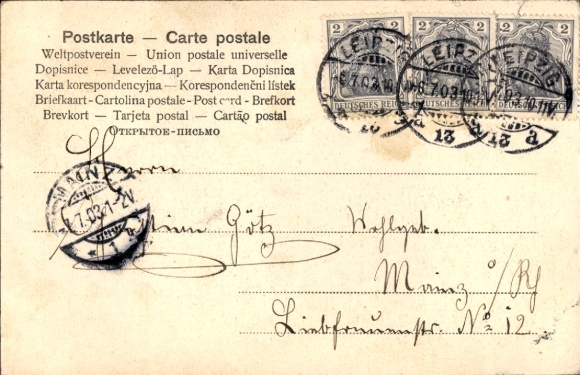 Postkarte — Carte postale
Weltpostverein — Union postale universelle
Dopisnice — Levelező-Lap — Karta Dopisnica
Karta korespondencyjna — Korespondenční lístek
Briefkaart - Cartolina postale - Post card - Brefkort
Brevkort — Tarjeta postal — Cartão postal
ОТКРЫТОЕ-ПИСЬМО
2 2 2 2 2 2
DEUTSCHES REICH DEUTSCHES REICH DEUTSCHES REICH
LEIPZIG LEIPZIG LEIPZIG
6.7.03
13 13
MAINZ
7.03.1-2V
Herrn
Götz Wohlgeb.
Mainz a/Rh
Liebfrauenstr. No 12